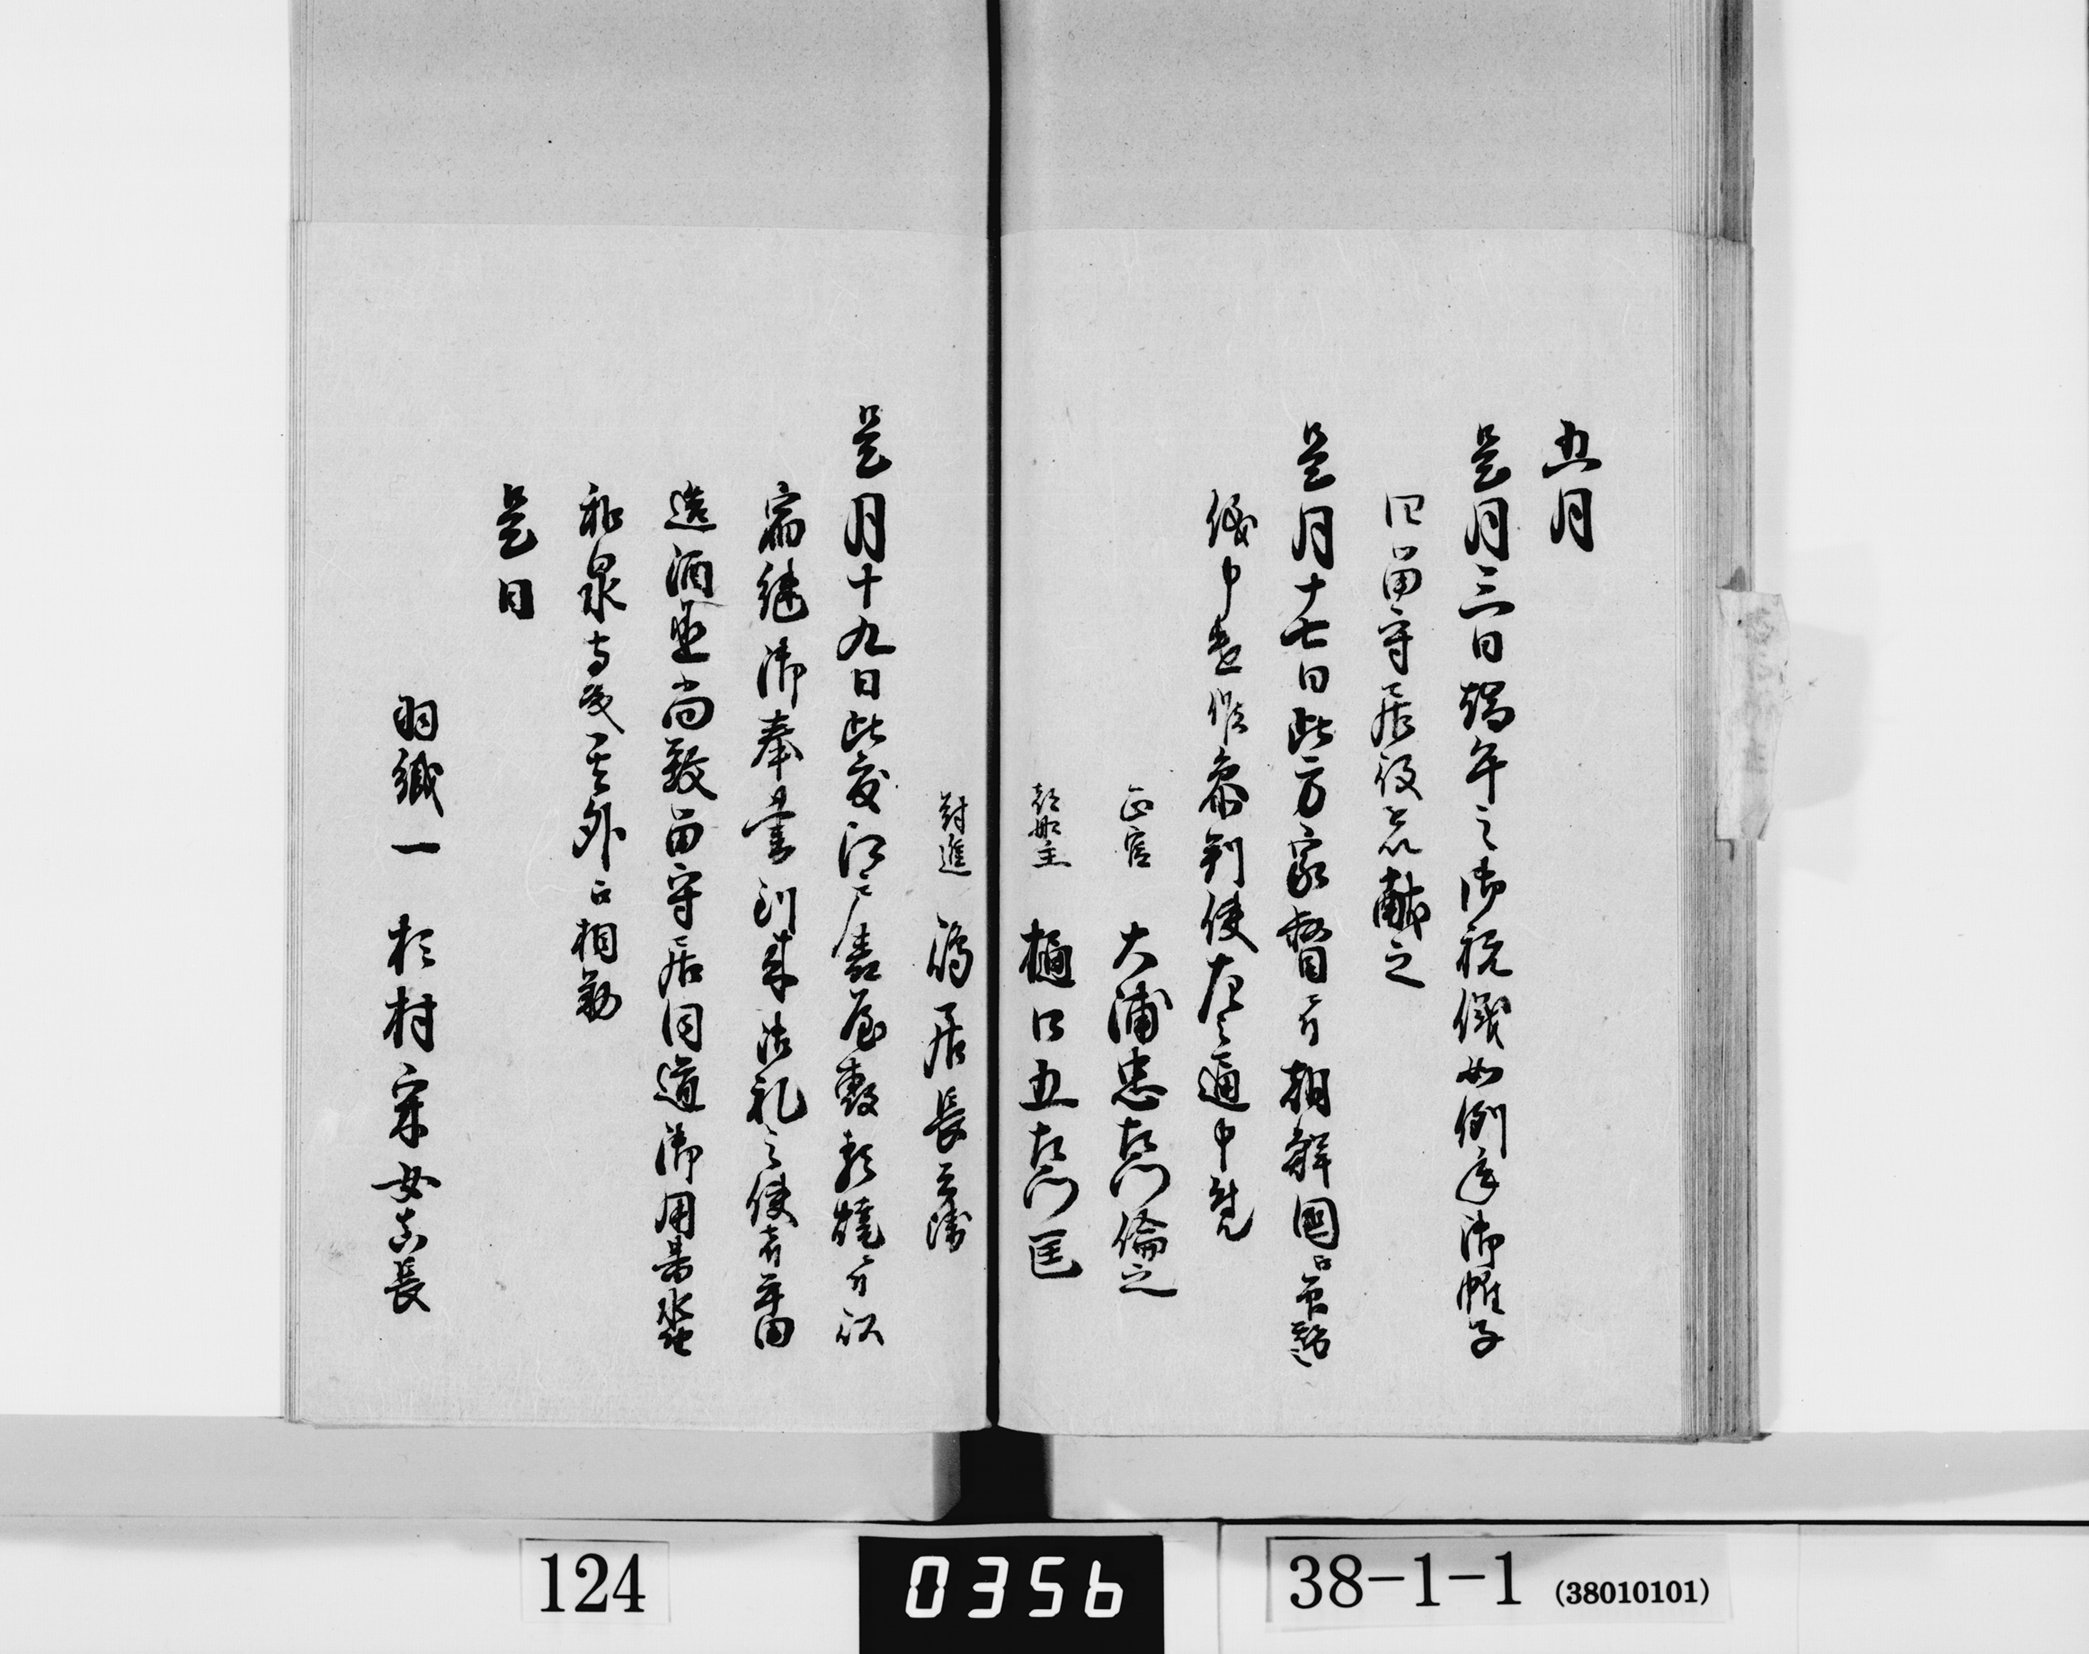 五月
是月三日端午之御祝儀如例年御帷子
田留守居役を以献之
是月十七日此方家督ニ付朝鮮國
儀申遣候参判使左之通申付
正官 大浦忠左衛門倫之
都船主 樋口五左衛門匡
封進 嶋居長兵衛
是月十九日此度江戸屋敷類焼ニ付以
宿継御奉書到来御礼之使者平田
造酒丞尚致留守居同道御用番
和泉守殿其外江相勤
是日
羽織一 杉村采女真長
124
0356
38-1-1 (38010101)